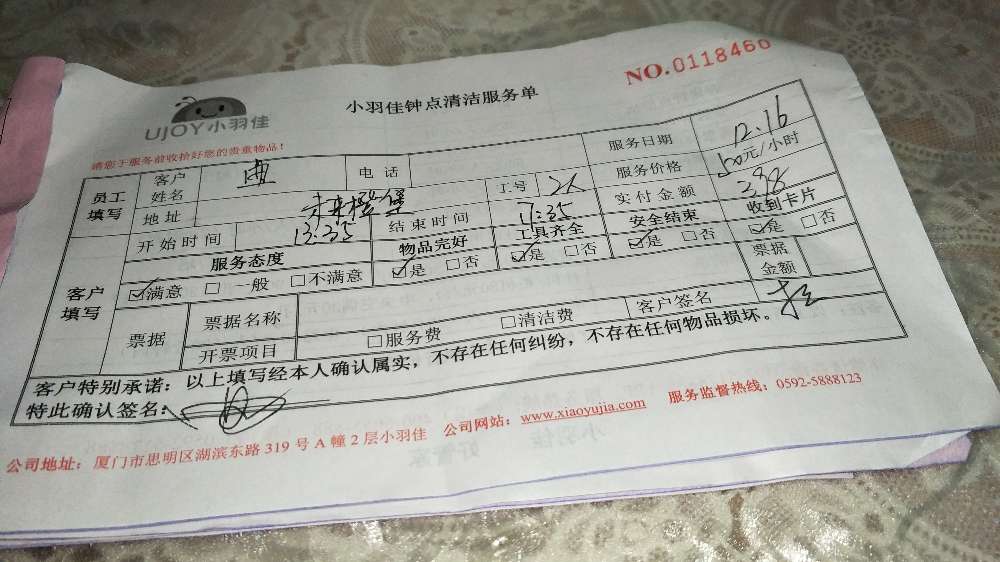 NO.0118460
小羽佳钟点清洁服务单
UJOY小羽佳
请您于服务前收拾好您的贵重物品!
员工填写 客户姓名 曲 电话 服务日期 12.16
地址 未来橙堡 工号 2人 服务价格 元/小时
开始时间 13:35 结束时间 17:35 实付金额 398
服务态度 物品完好 工具齐全 安全结束 收到卡片
客户填写 ☑满意 □一般 □不满意 ☑是 □否 ☑是 □否 ☑是 □否 ☑是 □否
票据 票据名称 票据金额
开票项目 □服务费 □清洁费 客户签名
客户特别承诺:以上填写经本人确认属实,不存在任何纠纷,不存在任何物品损坏。
特此确认签名:
公司地址:厦门市思明区湖滨东路319号A幢2层小羽佳 公司网站:www.xiaoyujia.com 服务监督热线:0592-5888123